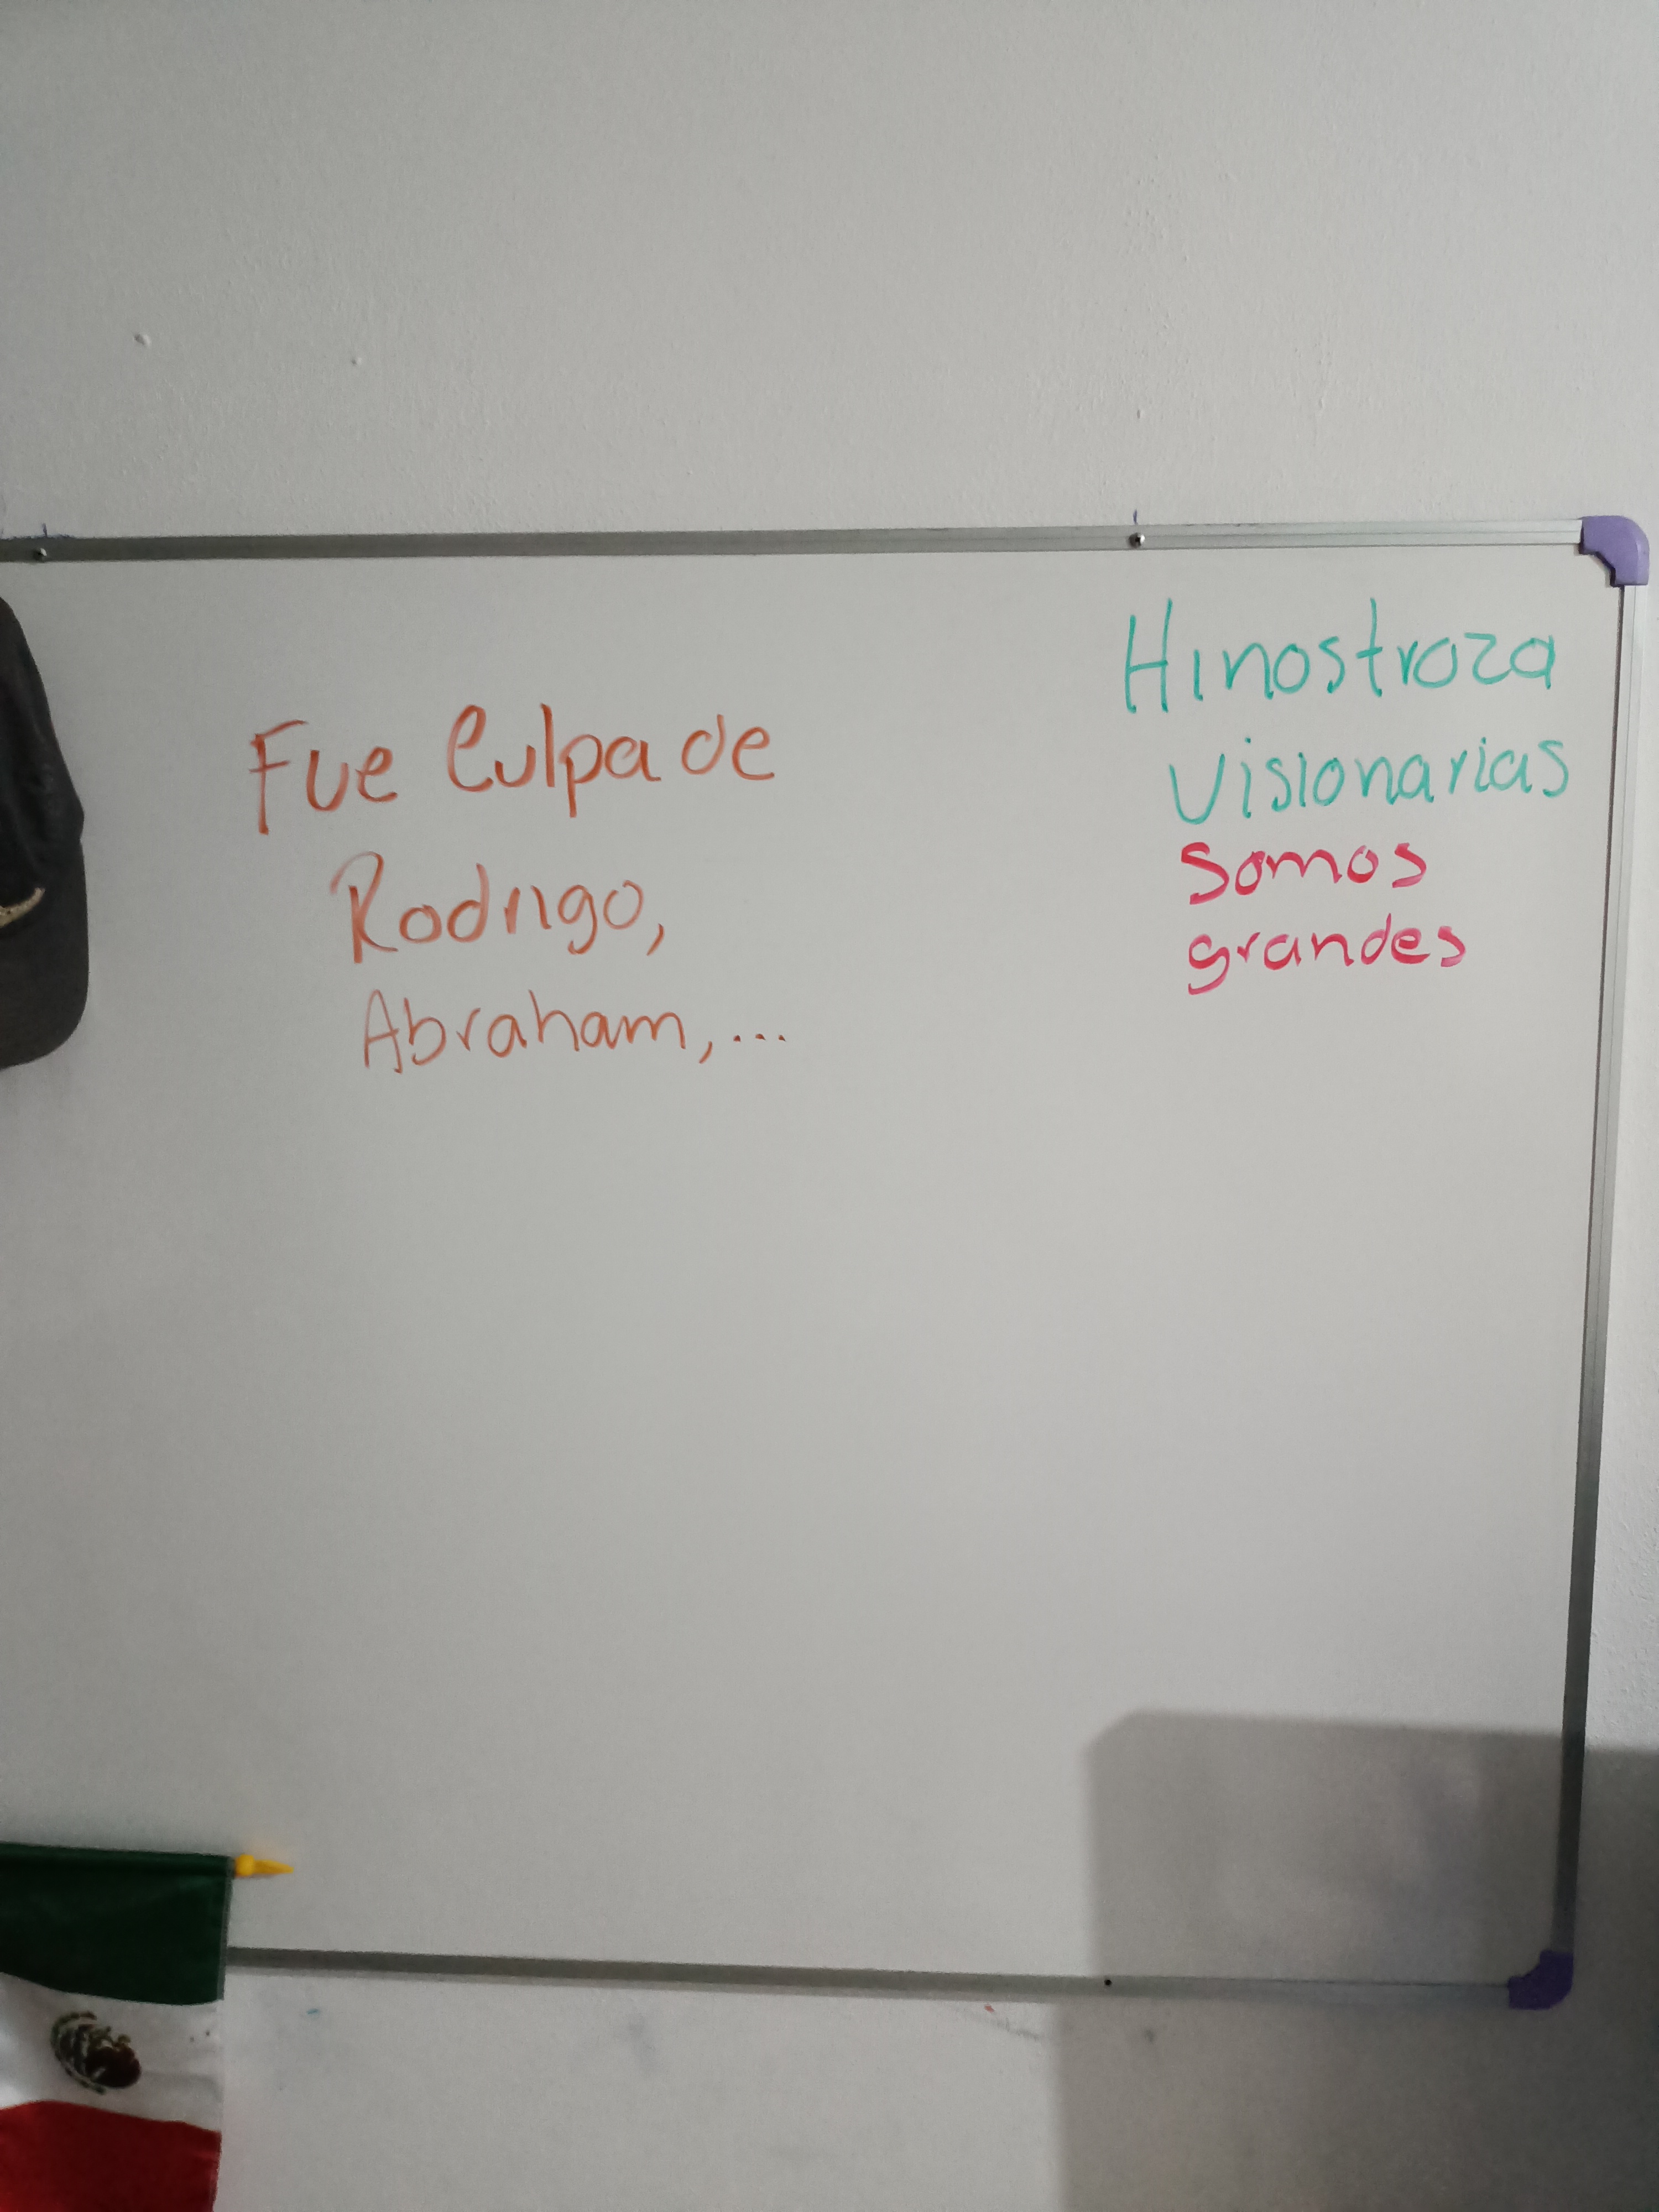 Fue Culpa de
Rodrigo,
Abraham,...
Hinostroza
Visionarias
Somos
grandes